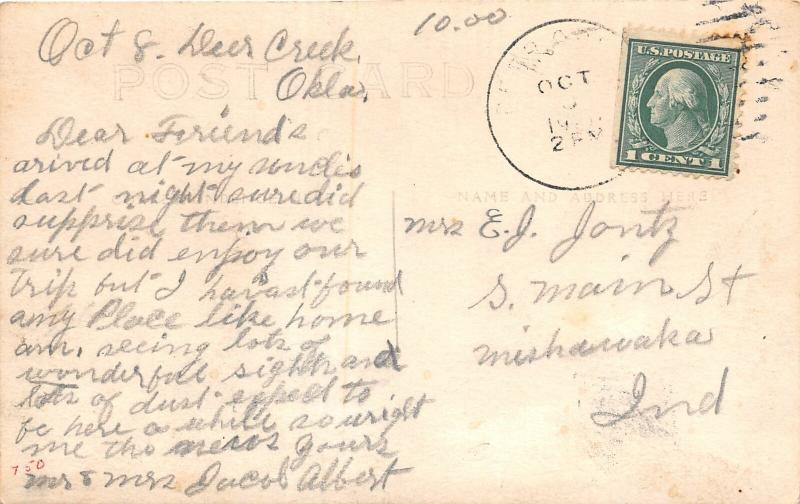 10.00
Oct 8. Deer Creek,
Okla,
POST CARD
OCT
2 PM
U.S. POSTAGE
1 CENT 1
Dear Feriend's
arived at my uncle's
last night sure did
supprise them we
sure did enjoy our
trip but I havast found
any Place like home
am, seeing lots of
wonderful sights and
lots of dust expect to
be here a while so wright
me the news yours
Mr & Mrs Jacob Albert
750
NAME AND ADDRESS HERE
Mrs E. J. Jontz
S. Main St
Mishawaka
Ind